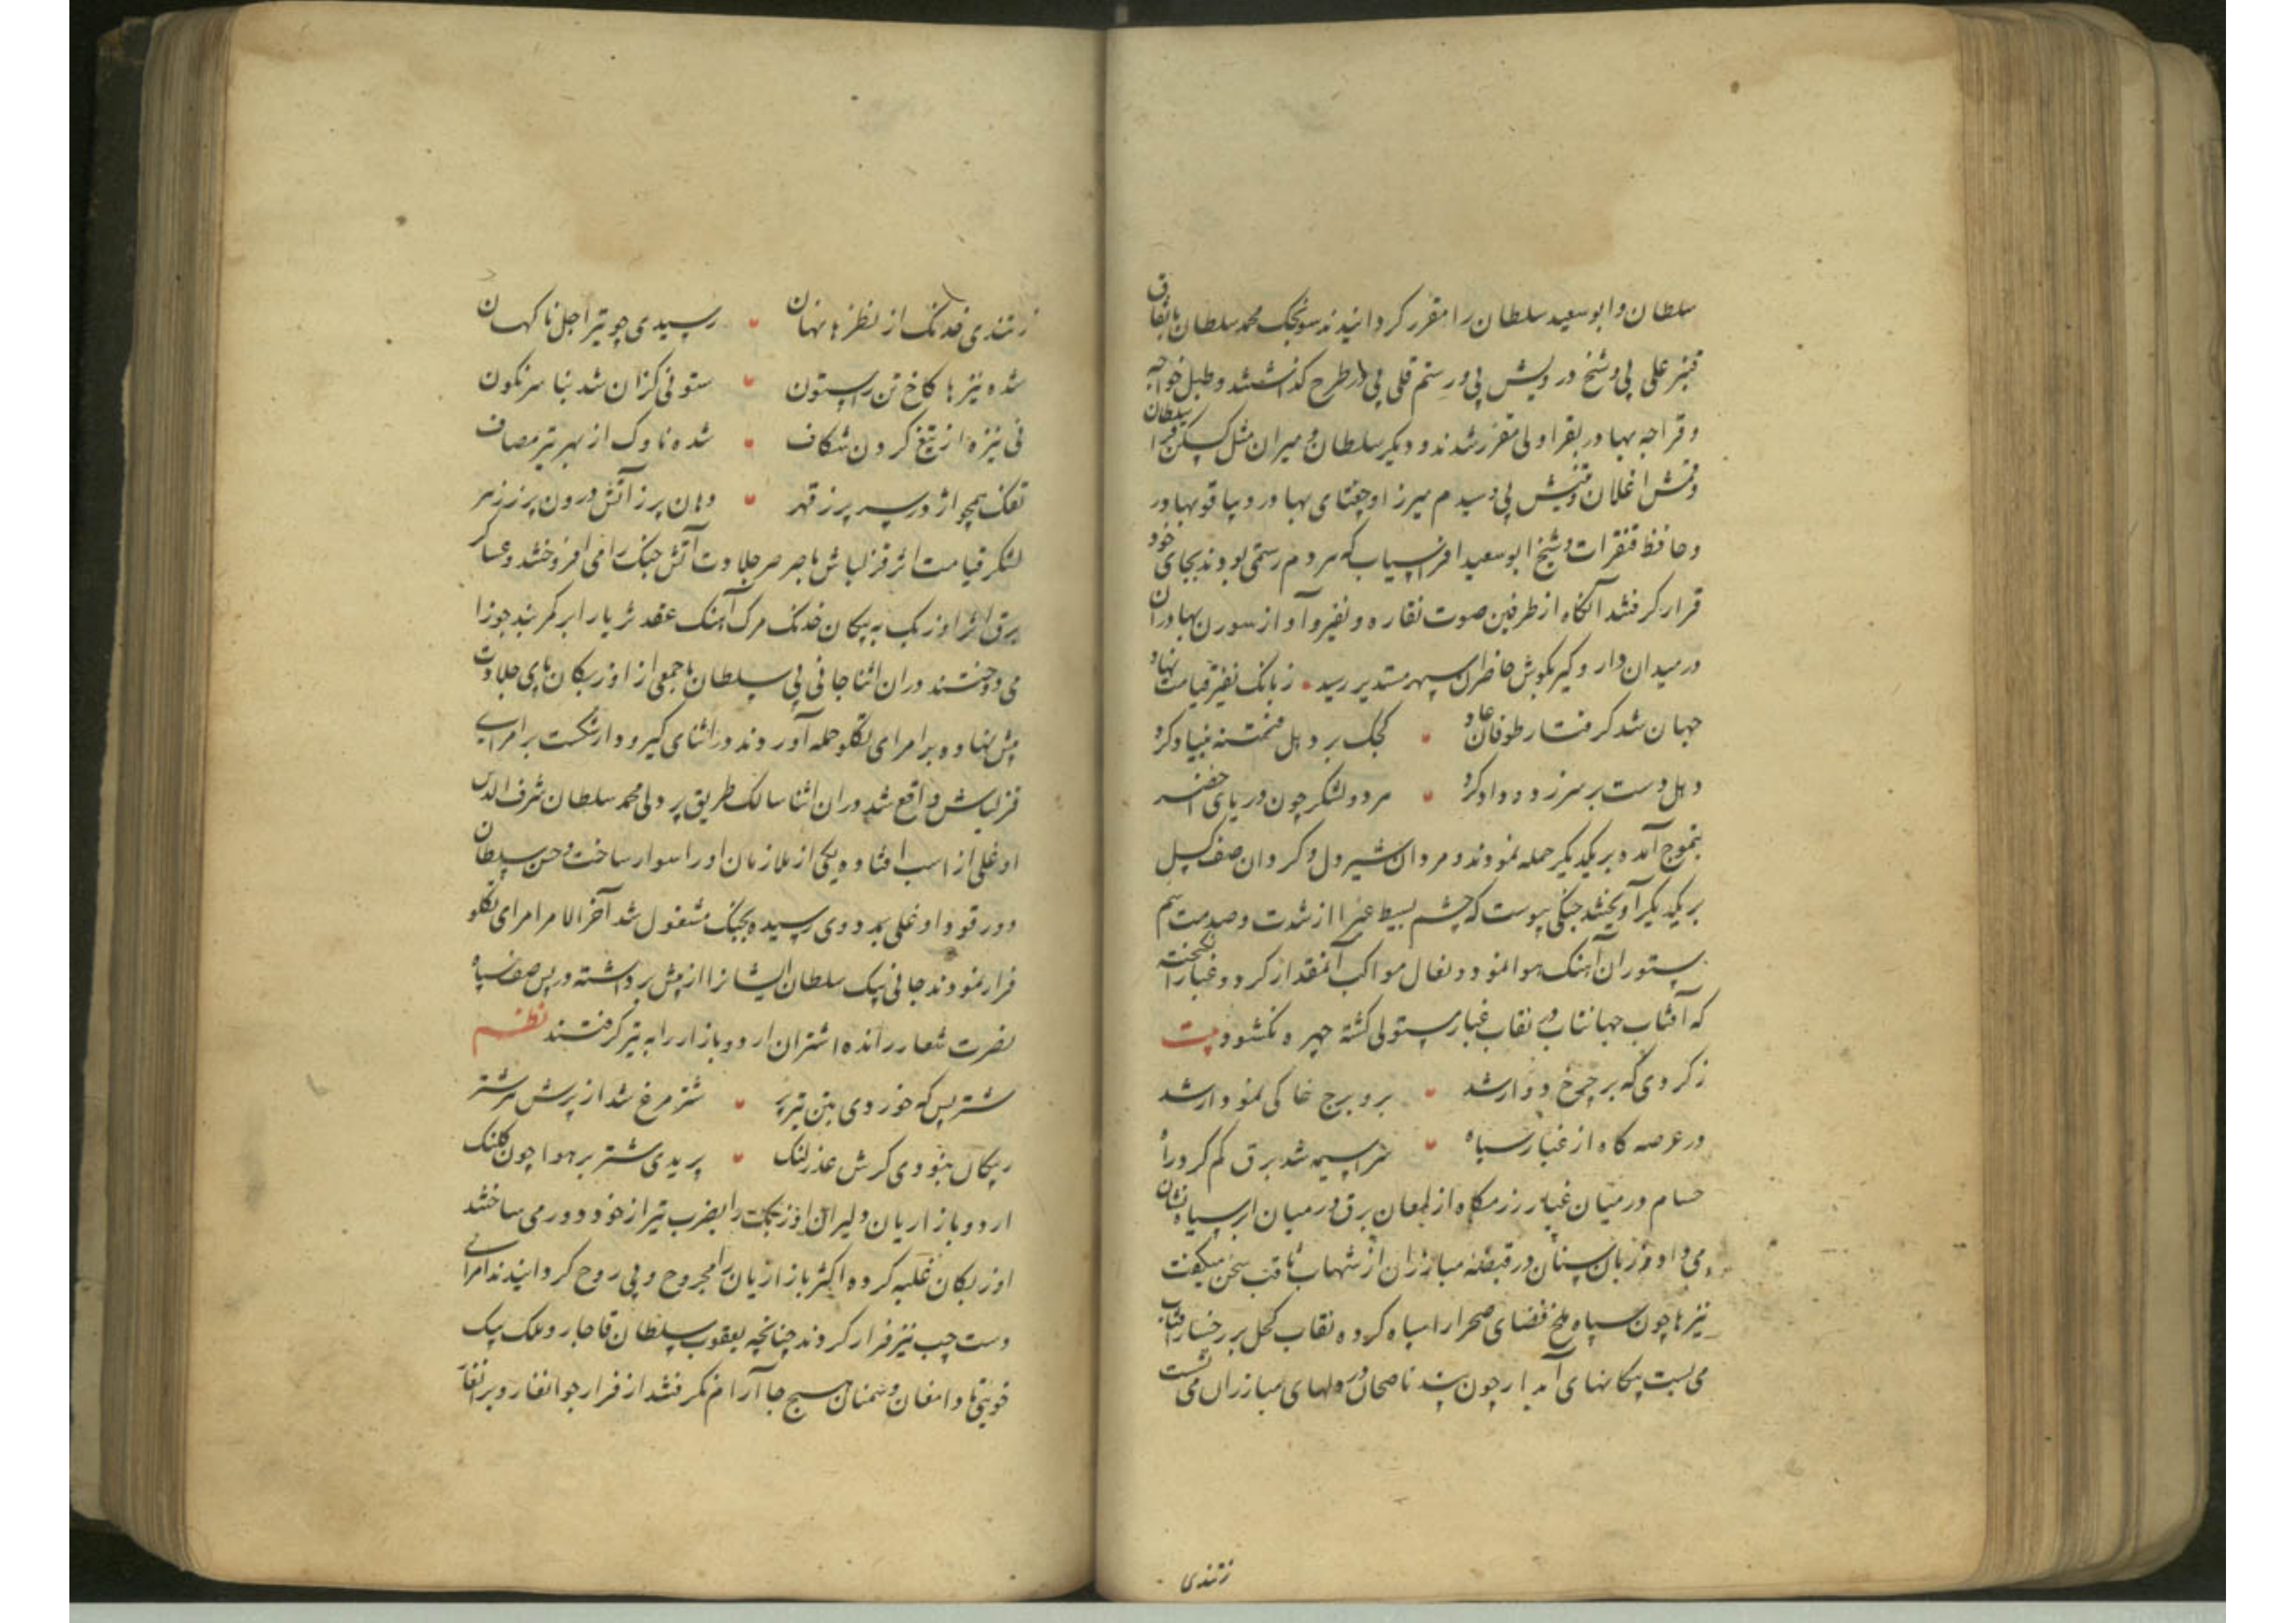 سلطان و ابو سعید سلطان را مقرر کردانیدند سونجک محمد سلطان باتفاق
قنبر علی بی و شیخ درویش بی و رستم قلی بی در طرح کذاشتند و طبل خواجه
و قراجه بهادر بقراولی مقرر شدند و دیکر سلطان و میران مثل سلطان
اغلان و بی و سیدم میرزا و جغتای بهادر و بیاقو بهادر
و حافظ قنقرات و شیخ ابو سعید افراسیاب که مردم رستمی بودند بجای خود
قرار کرفتند آنکاه از طرفین صوت نقاره و نفیر و آواز سورن بهادران
در میدان دار و کیر بکوش حاضران سپهر مستدیر رسید ز بانک نفیر قیامت نهاد
جهان شد کرفتار طوفان عاد کجک بر دهل فتنه بنیاد کرد
دهل دست بر سر زد و داد کرد مر دو لشکر چون دریای اخضر
بتموج آمده بر یکدیکر حمله نمودند و مردان شیر دل و کردان صف کسل
بر یکدیکر آویختند جنکی پیوست که چشم بسیط غبرا از شدت و صدمت سم
ستوران آهنک هوا نمود و نعال مواکب آنمقدار کرد و غبار انکیخت
که آفتاب جهانتاب در نقاب غبار مستولی کشته چهره نکشود بیت
ز کردی که بر چرخ دوار شد برو برج خاکی نمودار شد
در عرصه کاه از غبار سیاه سراسیمه شد برق کم کرد راه
حسام در میان غبار رزمکاه از لمعان برق در میان ابر سیاه نشان
می داد و زبان سنان در قبضه مبارزان از شهاب ثاقب سخن میکفت
تیرها چون سپاه ملخ فضای صحرا را سیاه کرده نقاب کحل بر رخسار آفتاب
می بست پیکانهای آبدار چون پند ناصحان در دلهای مبارزان می نشست
ز تندی
ز تندی خدنک از نظرها نهان رسیدی چو تیر اجل ناکهان
شده نیزها کاخ تن را ستون ستونی کزان شد بنا سرنکون
نی نیزه از تیغ کردون شکاف شده ناوک از بهر تیر مصاف
تفنک همچو اژدر سر پر ز قهر دهان پر ز آتش درون پر ز زهر
لشکر قیامت اثر قزلباش باصرصر جلادت آتش جنک را می افروختند و عساکر
برق اثر اوزبک به پیکان خدنک مرک آهنک عقد ثریا را بر کمر بند جوزا
می دوختند دران اثنا جانی بی سلطان با جمعی از اوزبکان پای جلادت
پیش نهاده بر امرای تکلو حمله آوردند در اثنای کیر و دار شکست بر امرای
قزلباش واقع شد دران اثنا سالک طریق پر دلی محمد سلطان شرف الدین
اوغلی از اسب افتاده یکی از ملازمان او را سوار ساخت و حسن سلطان
دورقود اوغلی بمدد وی رسیده بجنک مشغول شد آخر الامر امرای تکلو
فرار نمودند جانی بیک سلطان ایشانرا از پیش برداشته در پس صف سپاه
نصرت شعار رانده اشتران اردو بازار را به تیر کرفتند نظم
شتر بس که خوردی بتن تیر پر شتر مرغ شد از پرش سر شتر
پیکان نبودی کرش عذر لنک پریدی شتر بر هوا چون کلنک
اردو بازاریان دلیران اوزبک را بضرب تیر از خود دور می ساختند
اوزبکان غلبه کرده اکثر بازاریان را مجروح و بی روح کردانیدند امرای
دست چپ نیز فرار کردند چنانچه یعقوب سلطان قاجار و ملک بیک
خوینی تا دامغان و سمنان هیچ جا آرام نکرفتند از فرار جوانغار و برانغار